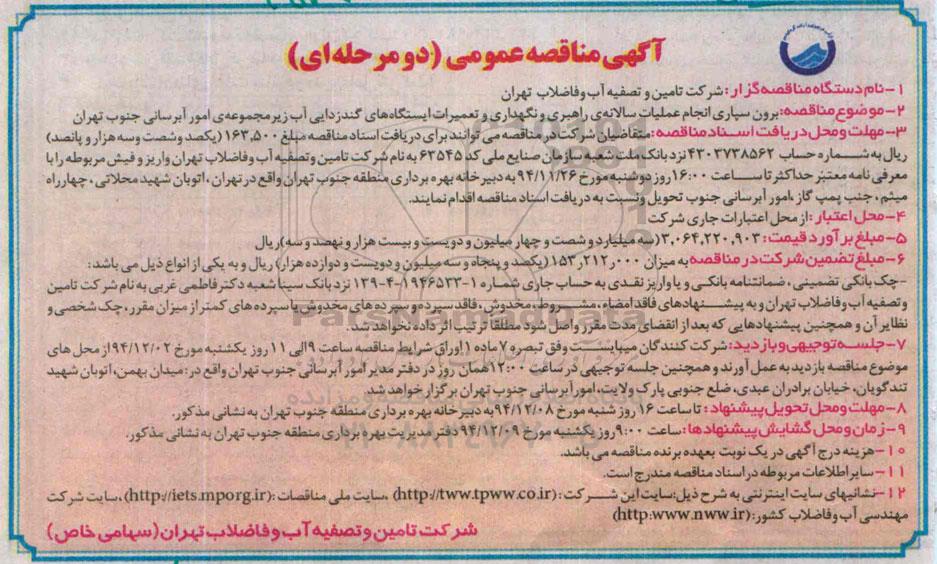 آگهی مناقصه عمومی (دو مرحله ای)
۱-نام دستگاه مناقصه گزار: شرکت تامین و تصفیه آب وفاضلاب تهران
۲-موضوع مناقصه: برون سپاری انجام عملیات سالانه‌ی راهبری و نگهداری و تعمیرات ایستگاه‌های گندزدایی آب زیر مجموعه‌ی امور آبرسانی جنوب تهران
۳-مهلت ومحل دریافت اسناد مناقصه: متقاضیان شرکت در مناقصه می توانند برای دریافت اسناد مناقصه مبلغ ۱۶۳,۵۰۰ (یکصد وشصت وسه هزار و پانصد)
ریال به شماره حساب ۴۳۰۳۷۳۸۵۶۲ نزد بانک ملت شعبه سازمان صنایع ملی کد ۶۳۵۴۵ به نام شرکت تامین وتصفیه آب وفاضلاب تهران واریز و فیش مربوطه را با
معرفی نامه معتبر حداکثر تا ساعت ۱۶:۰۰ روز دوشنبه مورخ ۹۴/۱۱/۲۶ به دبیرخانه بهره برداری منطقه جنوب تهران واقع در تهران ، اتوبان شهید محلاتی ، چهارراه
میثم ، جنب پمپ گاز ،امور آبرسانی جنوب تحویل ونسبت به دریافت اسناد مناقصه اقدام نمایند.
۴-محل اعتبار :از محل اعتبارات جاری شرکت
۵-مبلغ برآورد قیمت: ۳,۰۶۴,۲۲۰,۹۰۳(سه میلیارد و شصت و چهار میلیون و دویست و بیست هزار و نهصد و سه)ریال
۶-مبلغ تضمین شرکت در مناقصه به میزان ۱۵۳٫۲۱۲٫۰۰۰ (یکصد و پنجاه و سه میلیون و دویست و دوازده هزار) ریال و به یکی از انواع ذیل می باشد:
-چک بانکی تضمینی ، ضمانتنامه بانکی و یا واریز نقدی به حساب جاری شماره ۱-۱۹۴۶۵۳۳-۴-۱۳۹ نزد بانک سینا شعبه دکتر فاطمی غربی به نام شرکت تامین
و تصفیه آب وفاضلاب تهران و به پیشنهادهای فاقد امضاء ، مشروط ، مخدوش ، فاقد سپرده و سپرده های مخدوش یا سپرده های کمتر از میزان مقرر ، چک شخصی و
نظایر آن و همچنین پیشنهادهایی که بعد از انقضای مدت مقرر واصل شود مطلقا ترتیب اثر داده نخواهد شد.
۷-جلسه توجیهی و بازدید: شرکت کنندگان میبایست وفق تبصره ۷ ماده ۱ اوراق شرایط مناقصه ساعت ۹ الی ۱۱ روز یکشنبه مورخ ۹۴/۱۲/۰۲ از محل های
موضوع مناقصه بازدید به عمل آورند و همچنین جلسه توجیهی در ساعت ۱۲:۰۰ همان روز در دفتر مدیر امور آبرسانی جنوب تهران واقع در: میدان بهمن، اتوبان شهید
تندگویان، خیابان برادران عبدی، ضلع جنوبی پارک ولایت، امور آبرسانی جنوب تهران برگزار خواهد شد.
۸-مهلت ومحل تحویل پیشنهاد: تا ساعت ۱۶ روز شنبه مورخ ۹۴/۱۲/۰۸ به دبیرخانه بهره برداری منطقه جنوب تهران به نشانی مذکور.
۹-زمان ومحل گشایش پیشنهادها: ساعت ۹:۰۰ روز یکشنبه مورخ ۹۴/۱۲/۰۹ دفتر مدیریت بهره برداری منطقه جنوب تهران به نشانی مذکور.
۱۰-هزینه درج آگهی در یک نوبت بعهده برنده مناقصه می باشد.
۱۱-سایر اطلاعات مربوطه در اسناد مناقصه مندرج است.
۱۲-نشانیهای سایت اینترنتی به شرح ذیل: سایت این شرکت : (http://tww.tpww.co.ir) ،سایت ملی مناقصات :(http://iets.mporg.ir)، سایت شرکت
مهندسی آب وفاضلاب کشور: (http:www.nww.ir)
شرکت تامین و تصفیه آب و فاضلاب تهران (سهامی خاص)
ParsNamadData